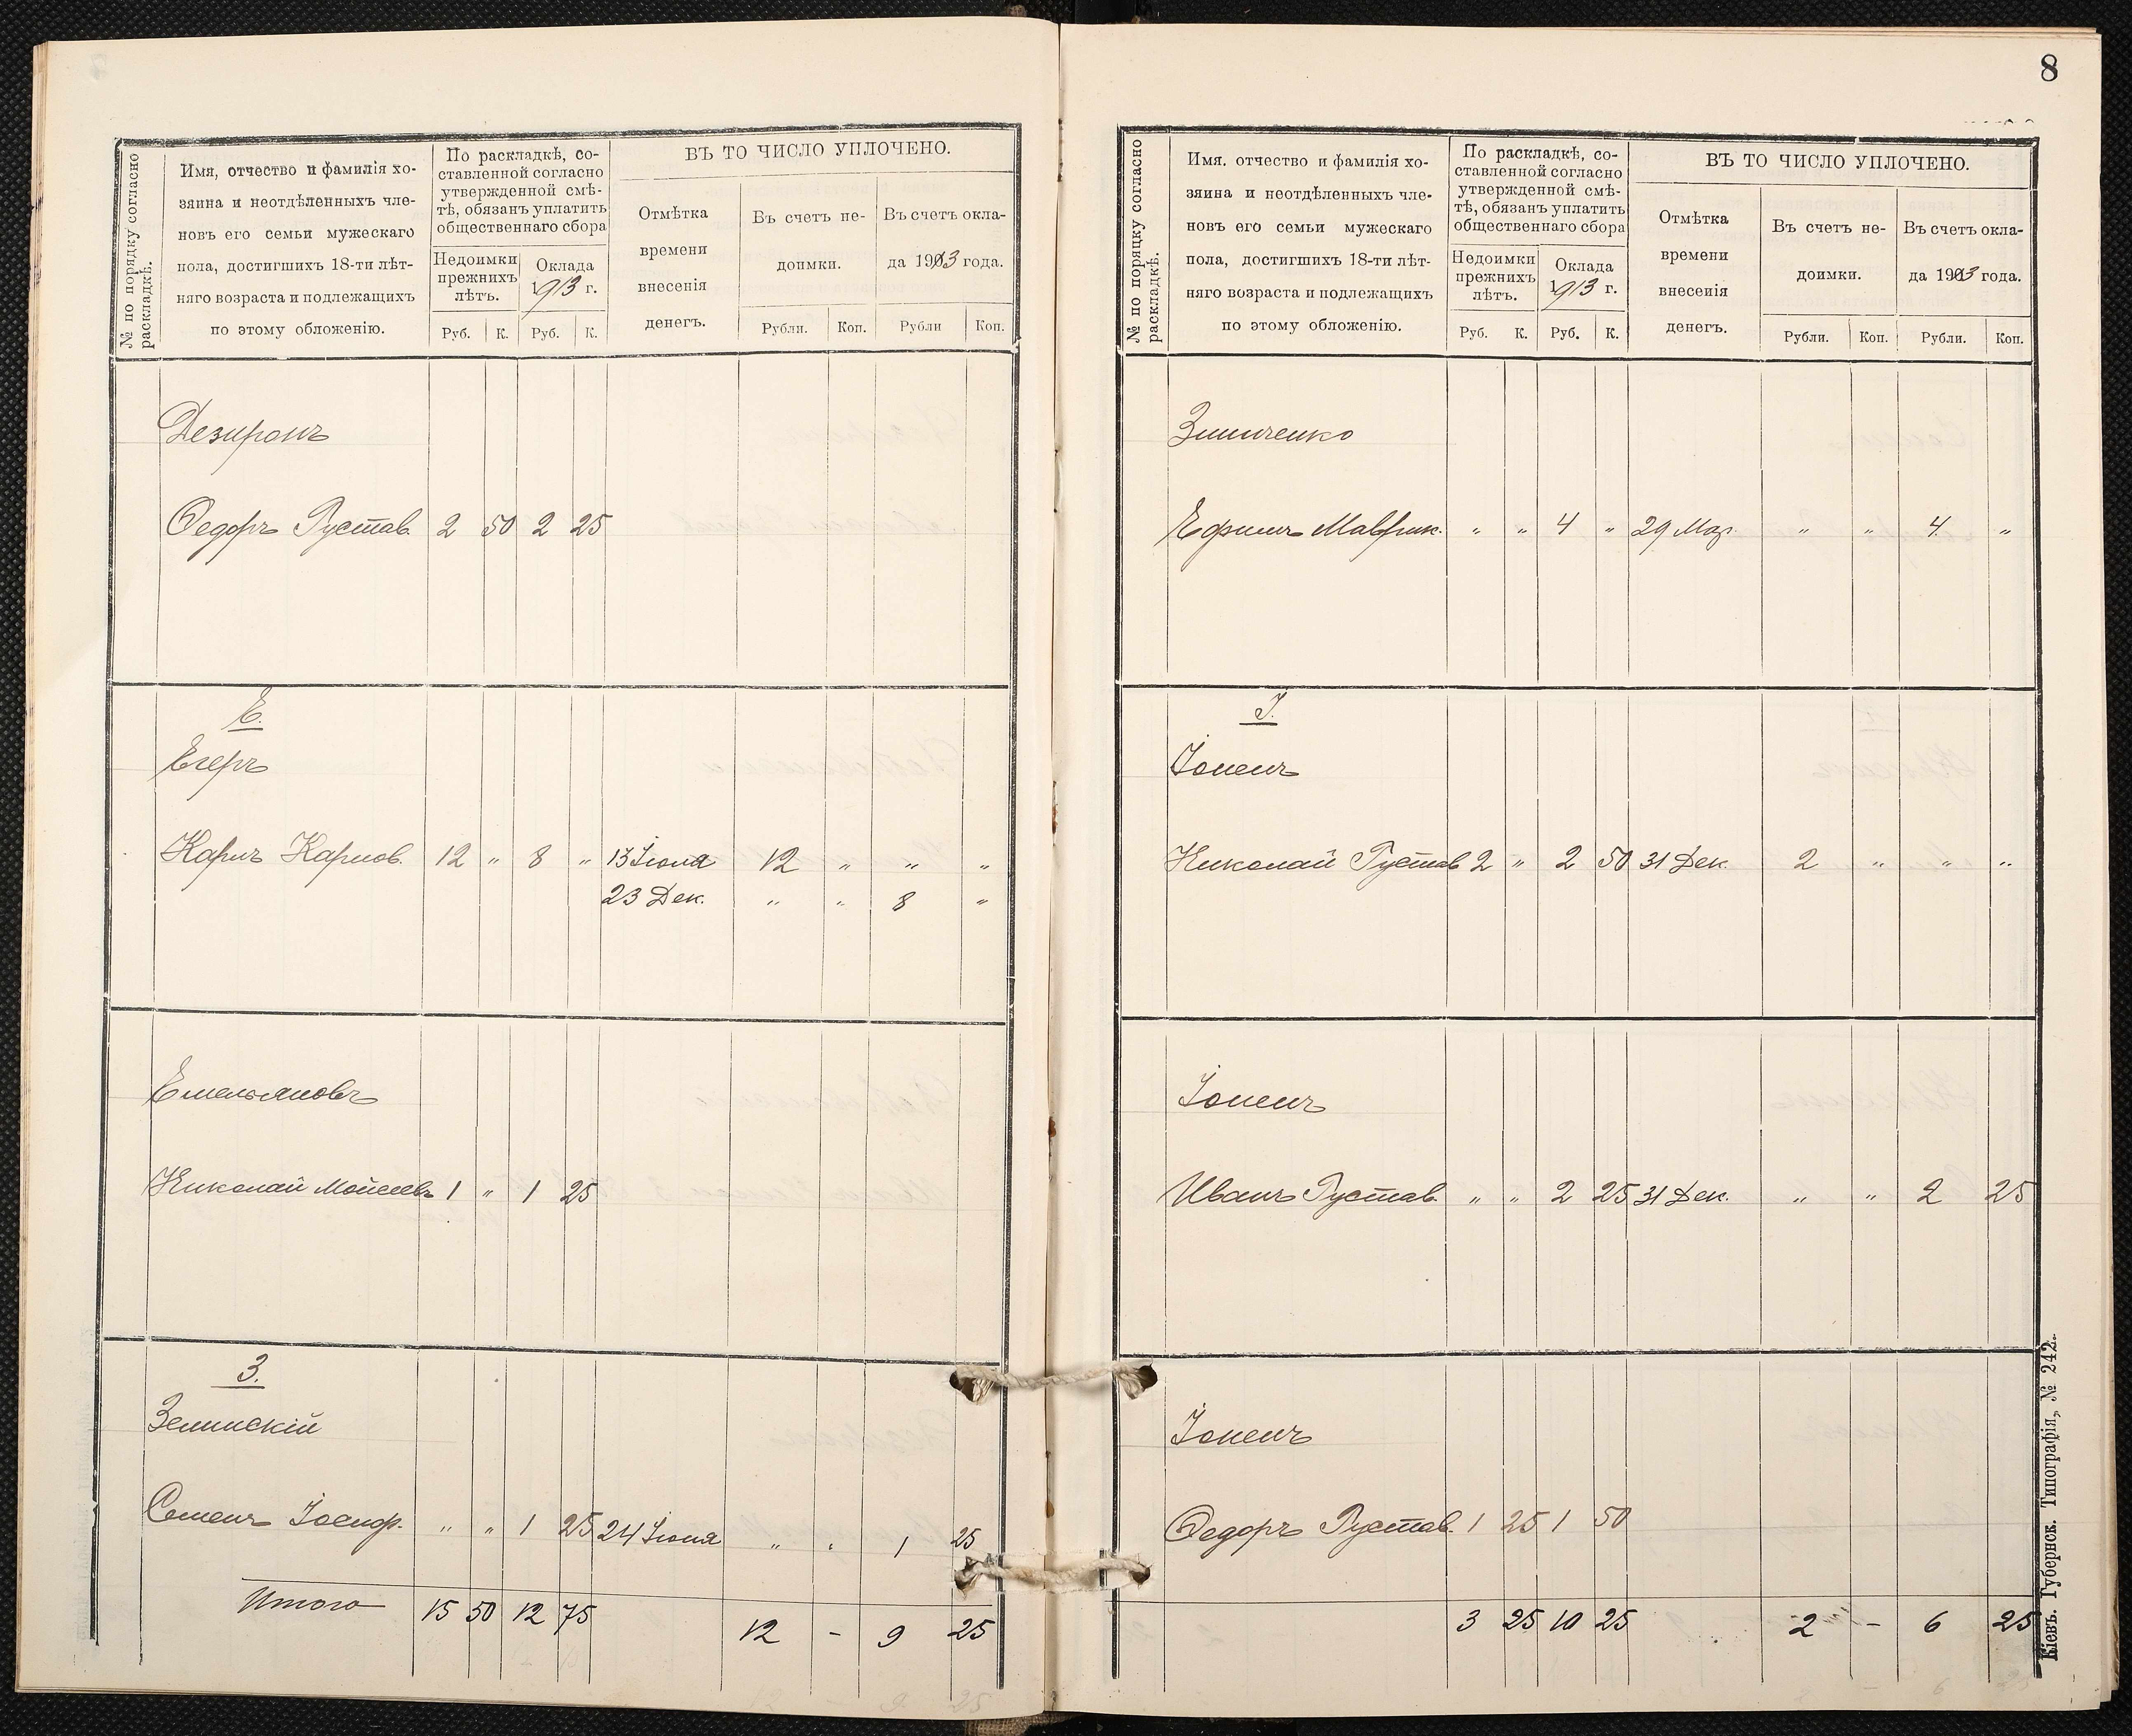 № по порядку согласно
раскладкѣ.
Имя, отчество и фамилія хо-
зяина и неотдѣленныхъ чле-
новъ его семьи мужескаго
пола, достигшихъ 18-ти лѣт-
няго возраста и подлежащихъ
по этому обложенію.
По раскладкѣ, со-
ставленной согласно
утвержденной смѣ-
тѣ, обязанъ уплатить
общественнаго сбора
Недоимки
прежнихъ
лѣтъ.
Оклада
1913 г.
Руб. К. Руб. К.
ВЪ ТО ЧИСЛО УПЛОЧЕНО.
Отмѣтка
времени
внесенія
денегъ.
Въ счетъ не-
доимки.
Въ счетъ окла-
да 1913 года.
Рубли. Коп. Рубли Коп.
Дезиронъ
Федоръ Густав. 2 50 2 25
Е.
Егеръ
Карлъ Карлов. 12 " 8 " 13 Іюля 12 " " "
23 Дек. " " 8 "
Емельяновъ
Николай Моисеевъ 1 " 1 25
З.
Зелинскій
Семенъ Іосиф. " " 1 25 24 Іюня " " 1 25
Итого 15 50 12 75 12 - 9 25
8
№ по порядку согласно
раскладкѣ.
Имя. отчество и фамилія хо-
зяина и неотдѣленныхъ чле-
новъ его семьи мужескаго
пола, достигшихъ 18-ти лѣт-
няго возраста и подлежащихъ
по этому обложенію.
По раскладкѣ, со-
ставленной согласно
утвержденной смѣ-
тѣ, обязанъ уплатить
общественнаго сбора
Недоимки
прежнихъ
лѣтъ.
Оклада
1913 г.
Руб. К. Руб. К.
ВЪ ТО ЧИСЛО УПЛОЧЕНО.
Отмѣтка
времени
внесенія
денегъ.
Въ счетъ не-
доимки.
Въ счетъ окла-
да 1913 года.
Рубли. Коп. Рубли. Коп.
Зинченко
Ефимъ Маврик. " " 4 " 29 Мар. " " 4 "
І.
Іоненъ
Николай Густав 2 " 2 50 31 Дек. 2 " " "
Іоненъ
Иванъ Густав. " " 2 25 31 Дек. " " 2 25
Іоненъ
Федоръ Густав. 1 25 1 50
3 25 10 25 2 - 6 25
Кіевъ. Губернск. Типографія, № 242.